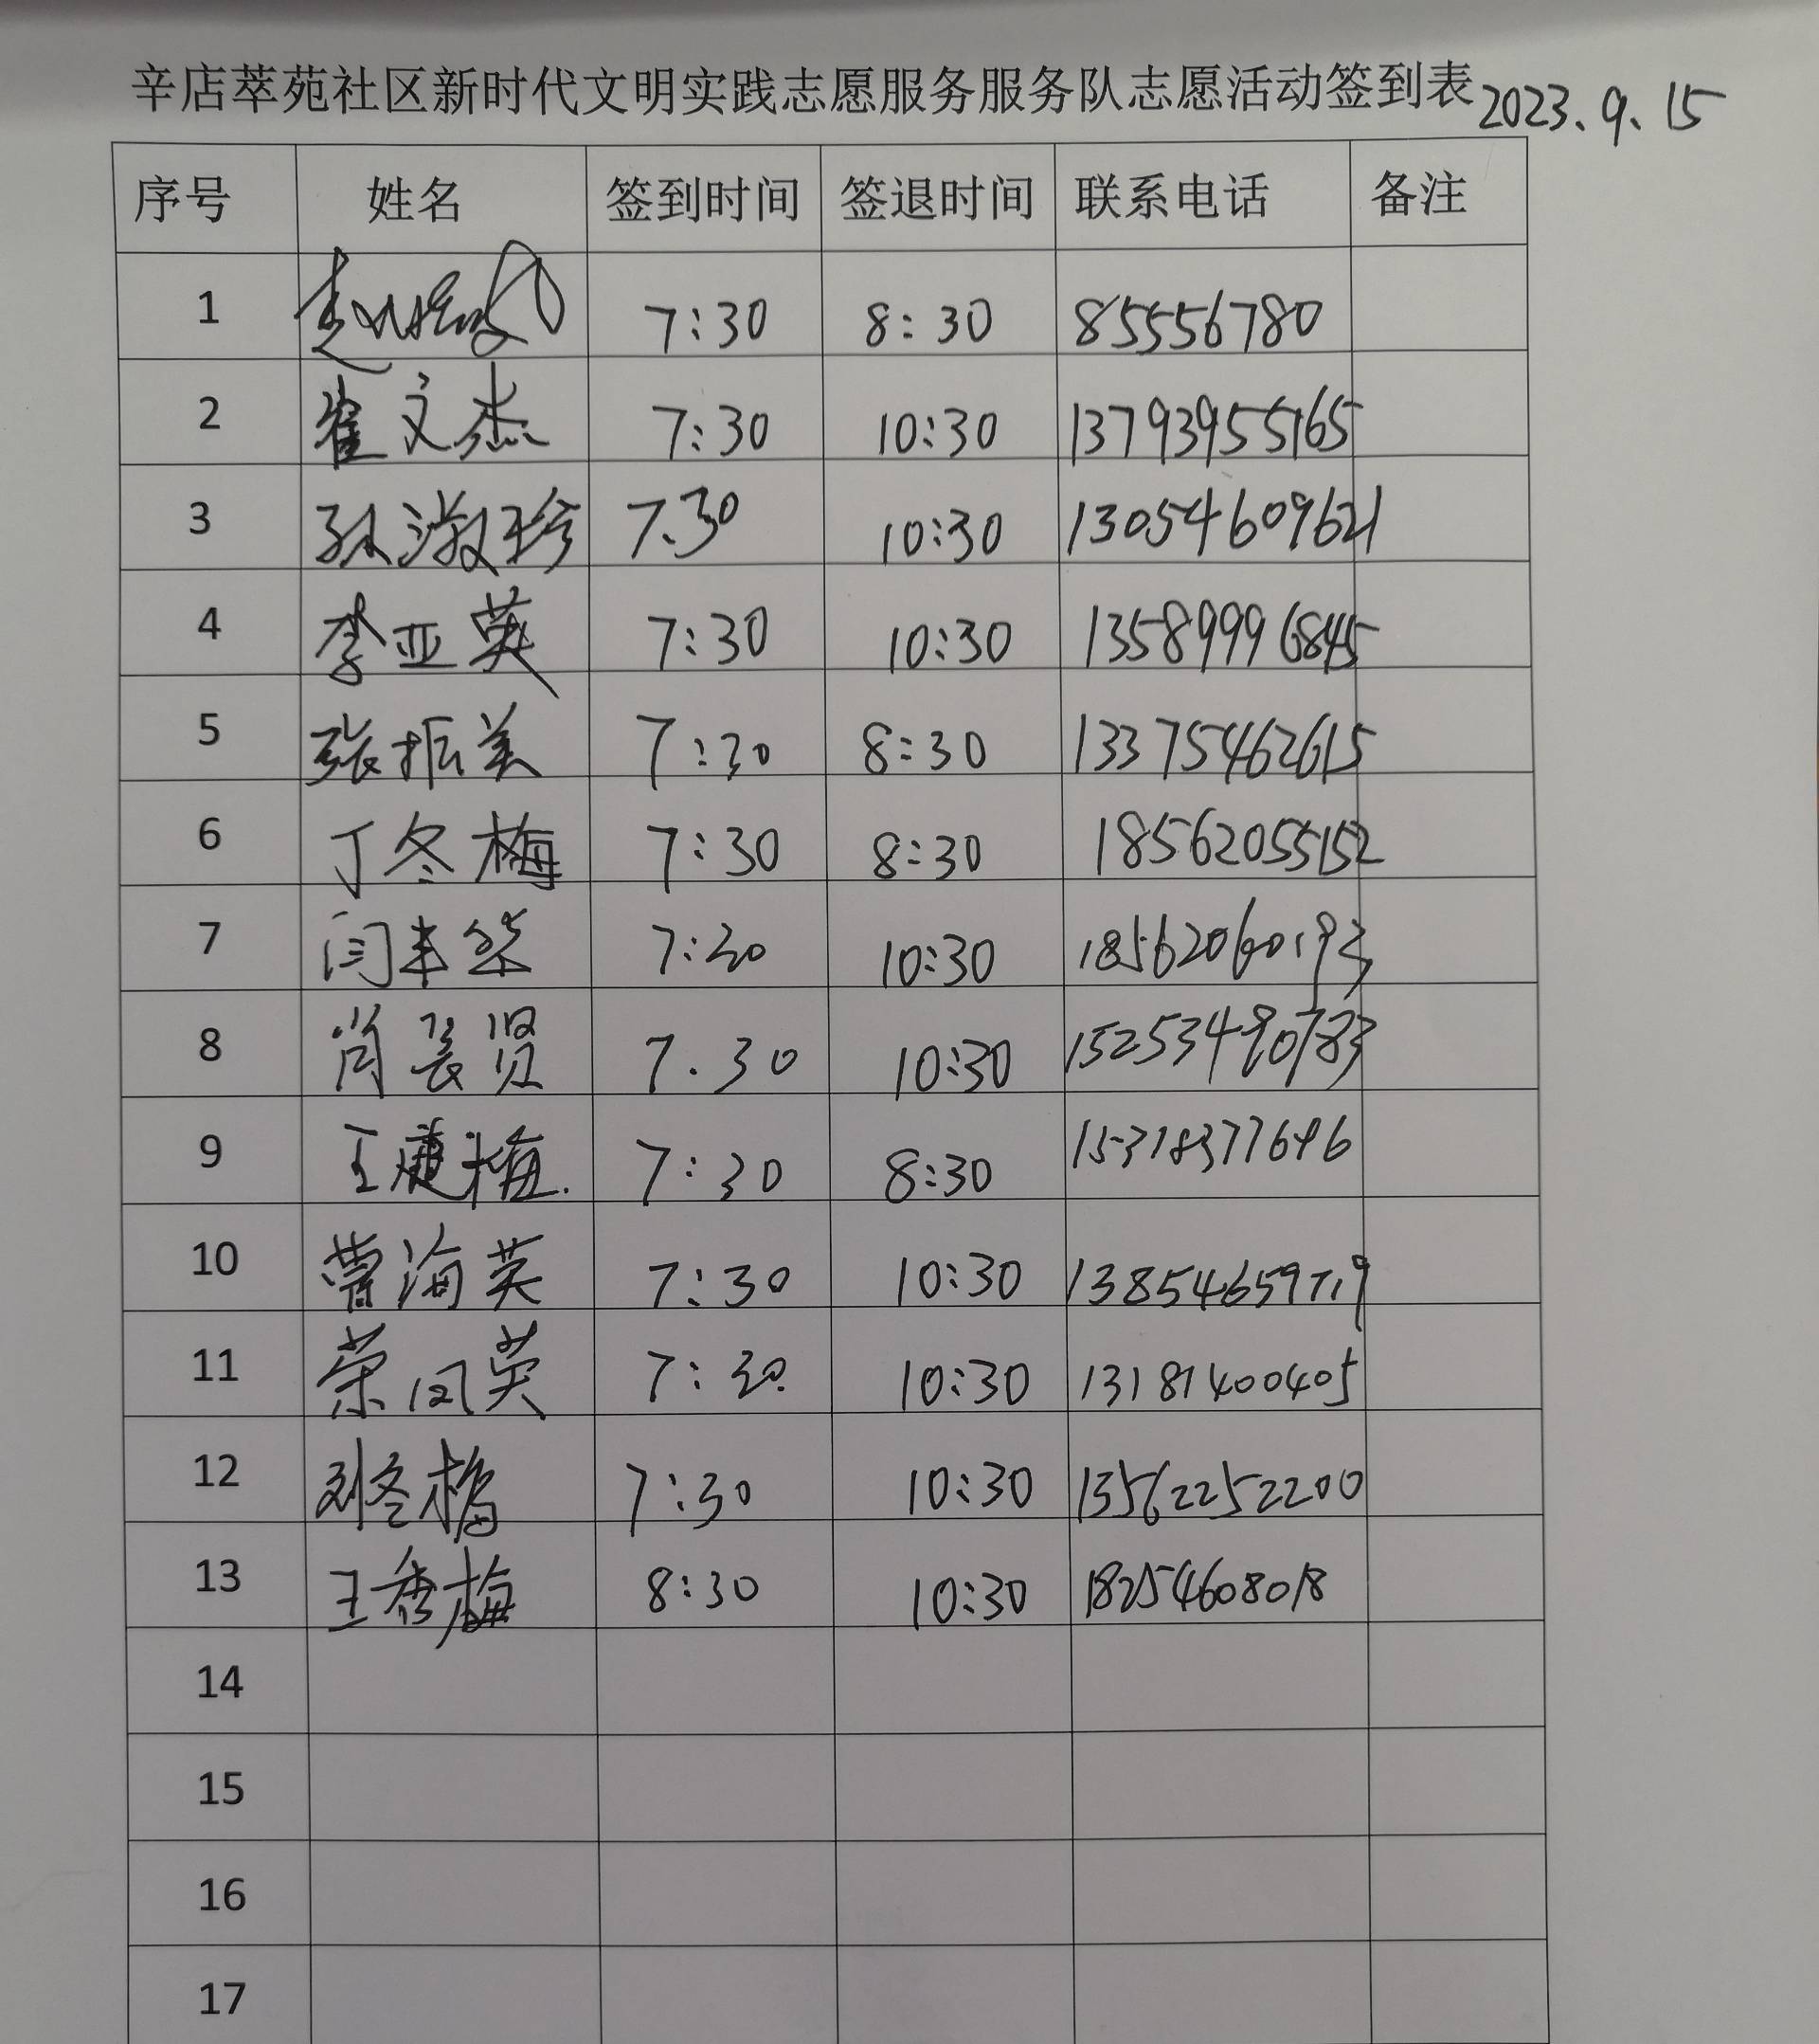 辛店萃苑社区新时代文明实践志愿服务服务队志愿活动签到表 2023.9.15
序号 姓名 签到时间 签退时间 联系电话 备注
1 7:30 8:30 85556780
2 崔文杰 7:30 10:30 13793955165
3 孙淑珍 7.30 10:30 13054609621
4 李亚英 7:30 10:30 13589996845
5 张振美 7:30 8:30 13375462615
6 丁冬梅 7:30 8:30 18562055152
7 闫丰华 7:30 10:30 18562060193
8 肖爱贤 7.30 10:30 15253490783
9 王 梅 7:30 8:30 15318377696
10 曹海英 7:30 10:30 13854659719
11 荣凤英 7:30 10:30 13181400405
12 刘冬梅 7:30 10:30 13562252200
13 王秀梅 8:30 10:30 18254608018
14
15
16
17